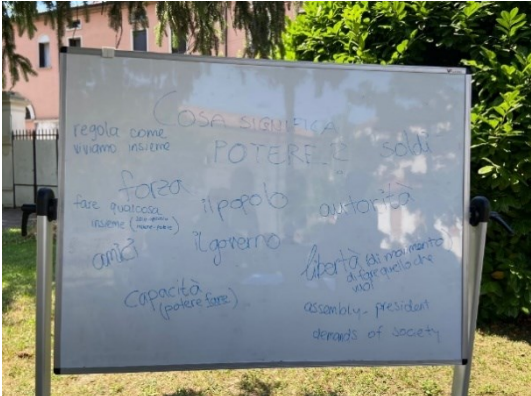 COSA SIGNIFICA
POTERE..?
regola come
viviamo insieme
soldi
forza
fare qualcosa
insieme
il popolo
autorità
amici
il governo
libertà di movimento
di fare quello che
vuoi
capacità
(potere fare)
assembly - president
demands of society